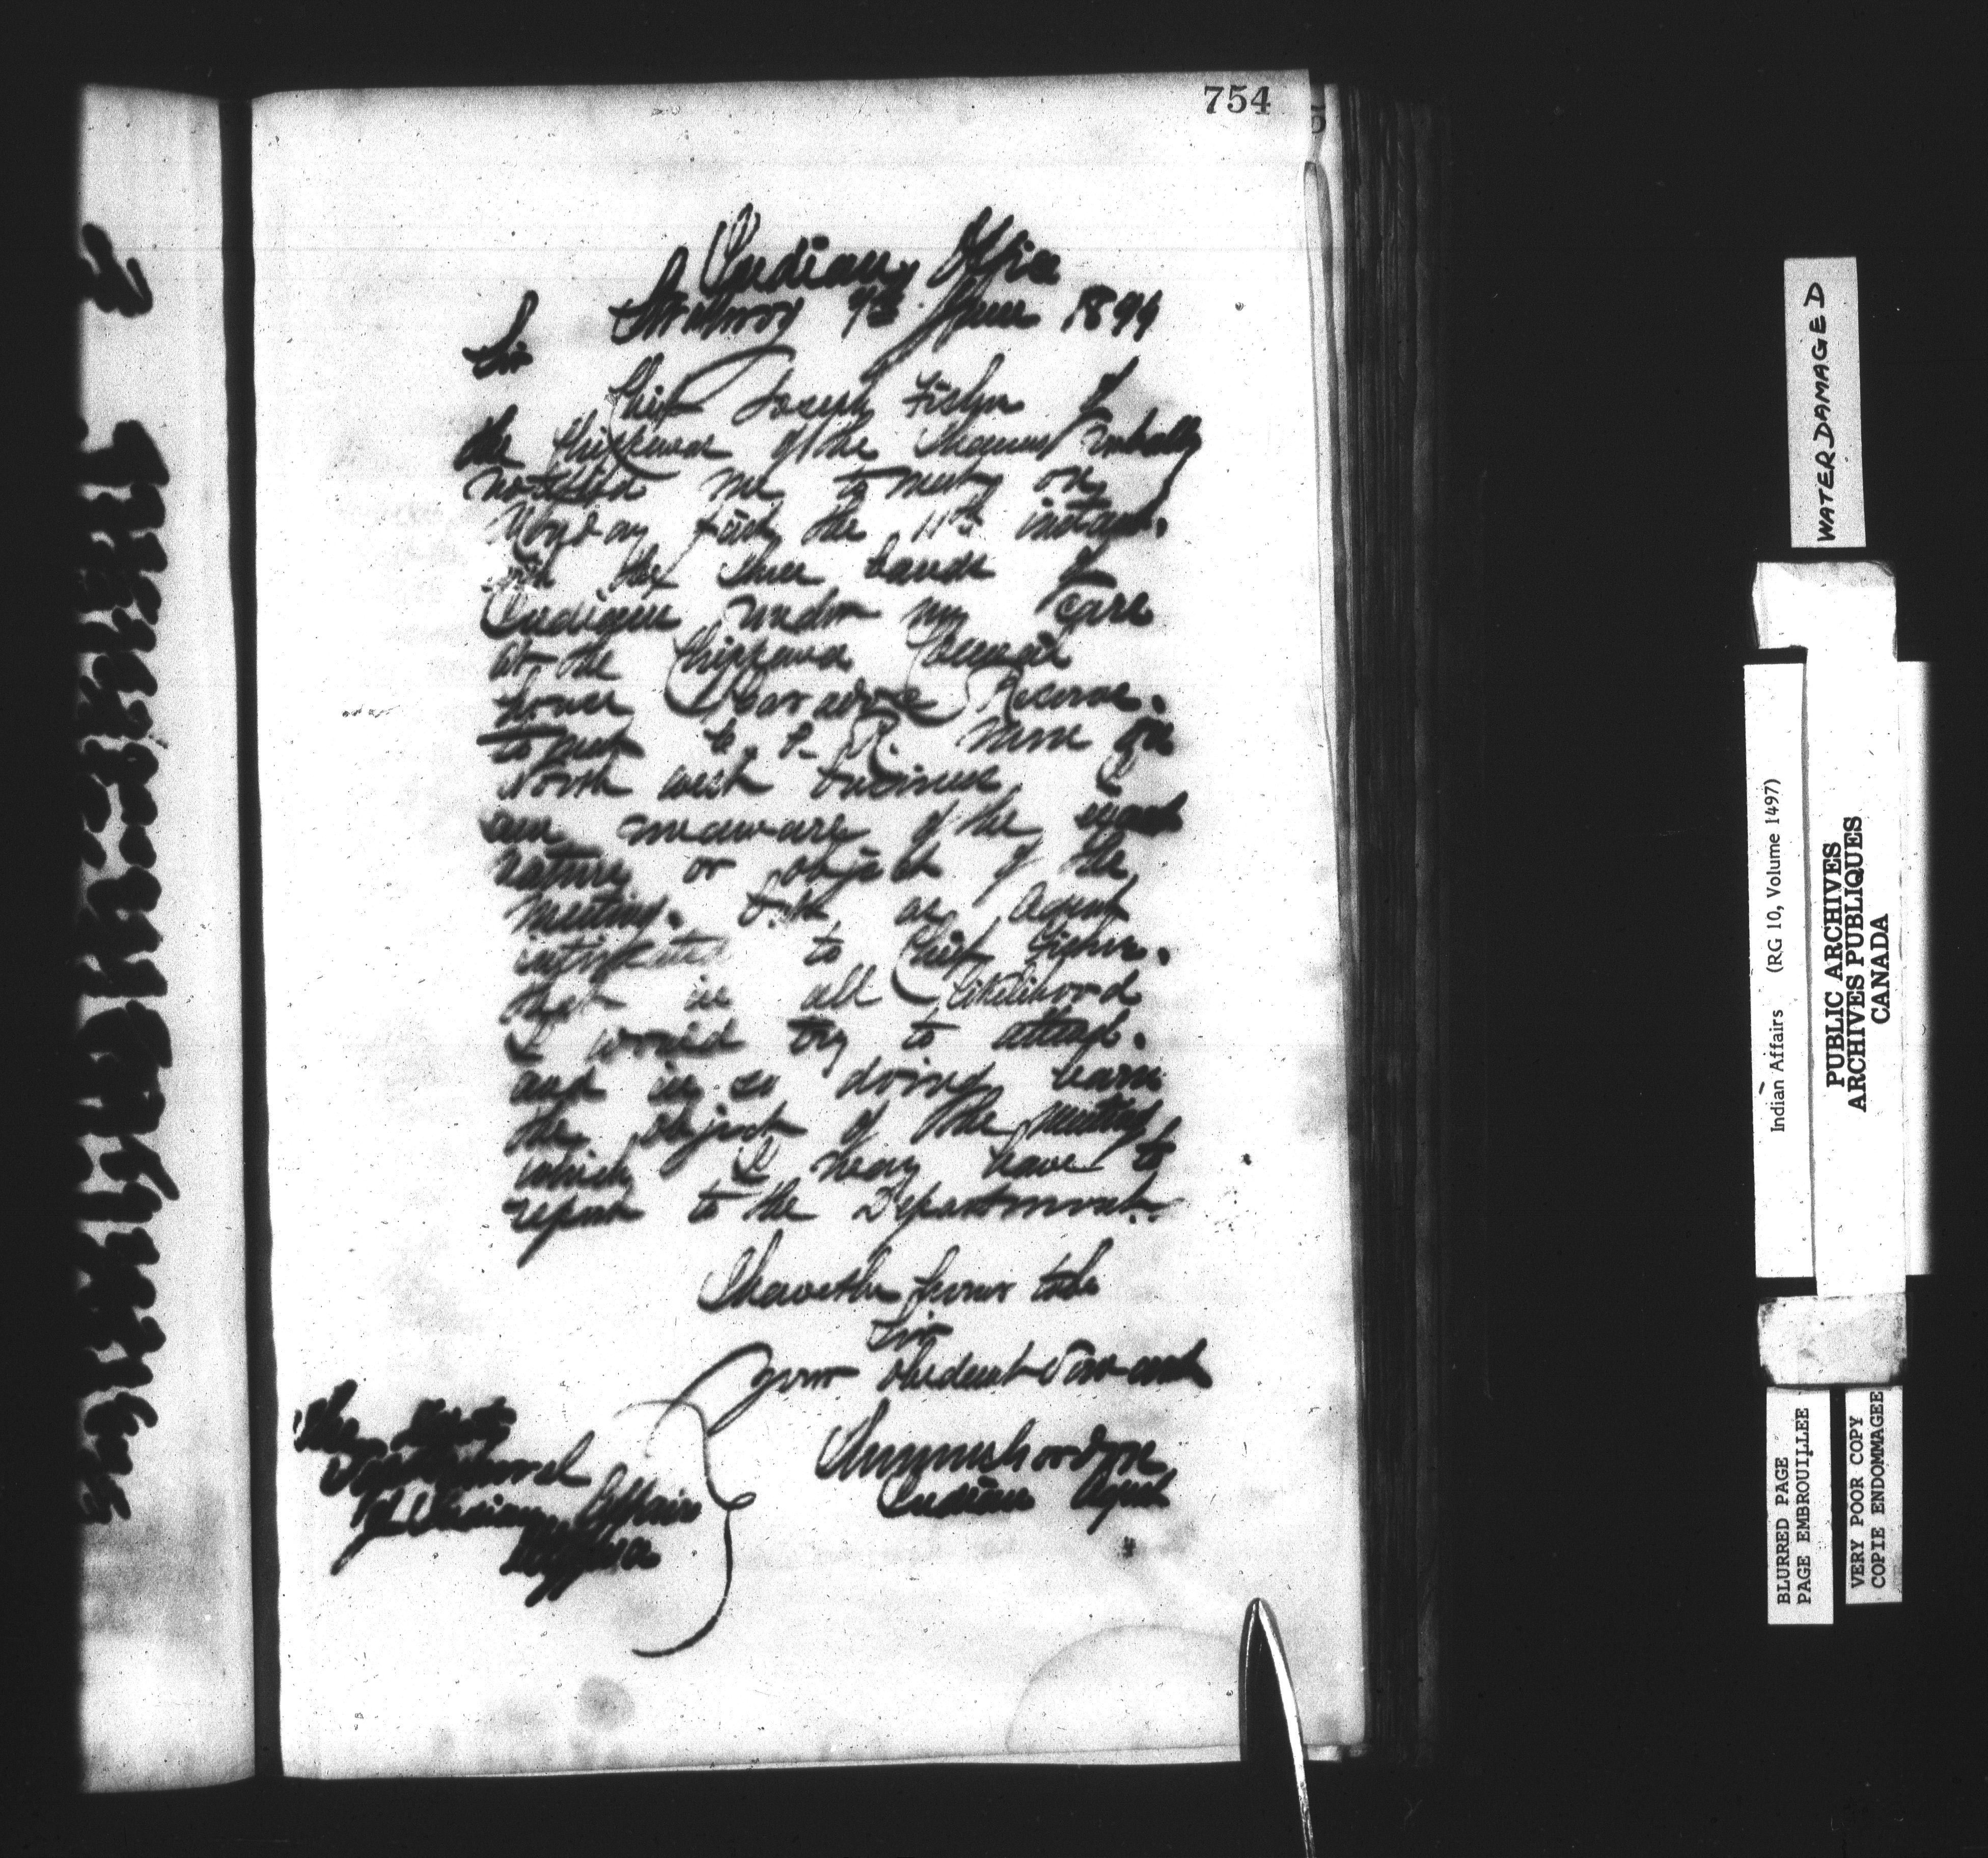 754
Indian Office
Strathroy 9th June 1894
Sir
Chief Joseph Fisher of
the Chippewas of the Thames verbally
notified me to meet on
Monday the 11th instant.
with the three bands of
Indians under my care
at the Chippewa Council
house Caradoc Reserve.
to meet C. P. R. men on
North west business I
am unaware of the exact
nature or object of the
meeting. But as Agent
intimated to Chief Fisher.
that in all likelihood
I would try to attend.
and in so doing learn
the object of the meeting
which I may have to
report to the Department.
I have the honor to be
Sir
Your obedient Servant
Indian Agent
The Deputy
of Indian Affairs
Ottawa
WATER DAMAGED
Indian Affairs (RG 10, Volume 1497)
PUBLIC ARCHIVES
ARCHIVES PUBLIQUES
CANADA
BLURRED PAGE
PAGE EMBROUILLEE
VERY POOR COPY
COPIE ENDOMMAGEE